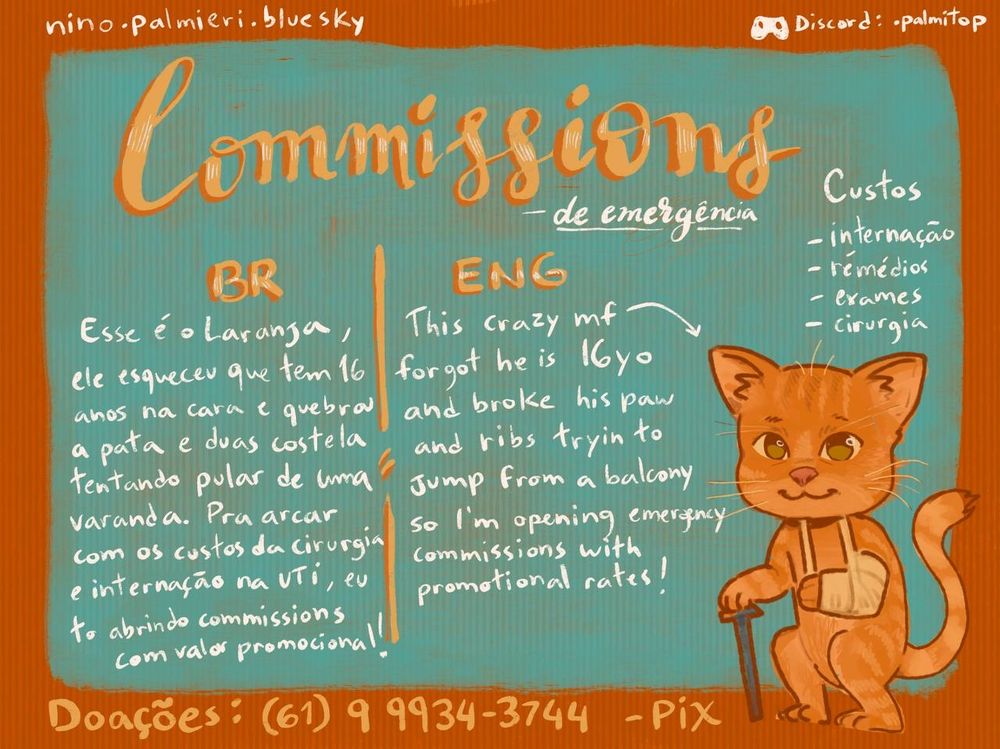 nino.palmieri.bluesky
Discord: .palmitop
Commissions
- de emergência
Custos
- internação
- remédios
- exames
- cirurgia
BR
Esse é o Laranja,
ele esqueceu que tem 16
anos na cara e quebrou
a pata e duas costela
tentando pular de uma
varanda. Pra arcar
com os custos da cirurgia
e internação na UTI, eu
to abrindo commissions
com valor promocional!
ENG
This crazy mf
forgot he is 16yo
and broke his paw
and ribs tryin to
jump from a balcony
so I'm opening emergency
commissions with
promotional rates!
Doações: (61) 9 9934-3744 - PiX